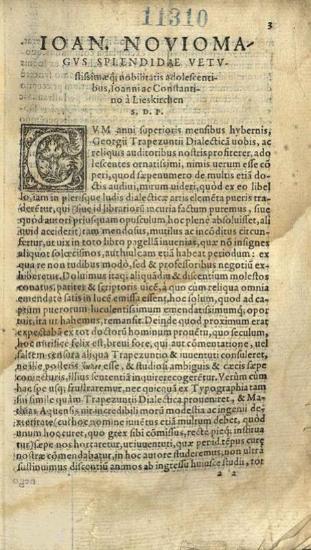 11310
3
IOAN. NOVIOMA-
GVS SPLENDIDAE VETV-
stissimæq; nobilitatis adolescenti-
bus, Ioanni ac Constanti-
no à Lieskirchen
S. D. P.
CVM anni superioris mensibus hybernis,
Georgii Trapezuntii Dialecticā vobis, ac
reliquis auditoribus nostris profiterer, ado
lescentes ornatissimi, nimis uerum esse cō
peri, quod sæpenumero de multis etiā do-
ctis audiui, mirum uideri, quòd ex eo libel
lo, iam in plerisque ludis dialecticæ artis elemēta pueris tra-
derētur, qui siue id librariorū incuria factum putemus, siue
quod autori priusquam opusculum, hoc planè absoluisset, ali
quid acciderit) tam mendosus, mutilus ac incōditus circun-
fertur, ut uix in toto libro pagellā inuenias, quæ nō insignes
aliquot solœcismos, aut hulcam etiā habeat periodum: ex
qua re non tuslimos modò, sed & professoribus negotiū ex-
hiberetur. Doluimus itaq; aliquādiu & dicentium molestos
conatus, pariter & scriptoris uicē, à quo cum reliqua omnia
emendatè satis in lucē emissa essent, hoc solum, quod ad ca-
ptum puerorum luculentissimum emendatissimumq; opor
tuit, ita ut habemus, temeratum. Deinde quod proximum erat
expectabā ex tot doctorū hominum prouētu, quo seculum,
hoc mirificè felix est, breui fore, qui aut cōmentatione, uel
saltem censura aliqua Trapezuntio & iuuentuti consuleret,
nósue posteris esse, & studiosi ambiguis & cæcis sæpe
coniecturis, illius sententiam inquirere cogerētur. Verùm cùm
hac spe usq; frustraremur, nec quicquā ex Typographia tam
sui simile quàm Trapezuntii Dialectica proueniret, & Ma-
thias Aquensis uir incredibili morū modestia ac ingenii de-
xteritate (cui hoc nomine iuuētus etiā multum debet, quòd
unum hoc curet, quo grex sibi cōmissus, rectè pieq; institua
tur) sæpe nos hortaretur, ut iuuentuti, quæ per id tēpus curę
nostræ cōmendabatur, in hoc autore studeremus, non ultra
sustinuimus discentiū animos ab ingressu huiusce studii, tot
a 2